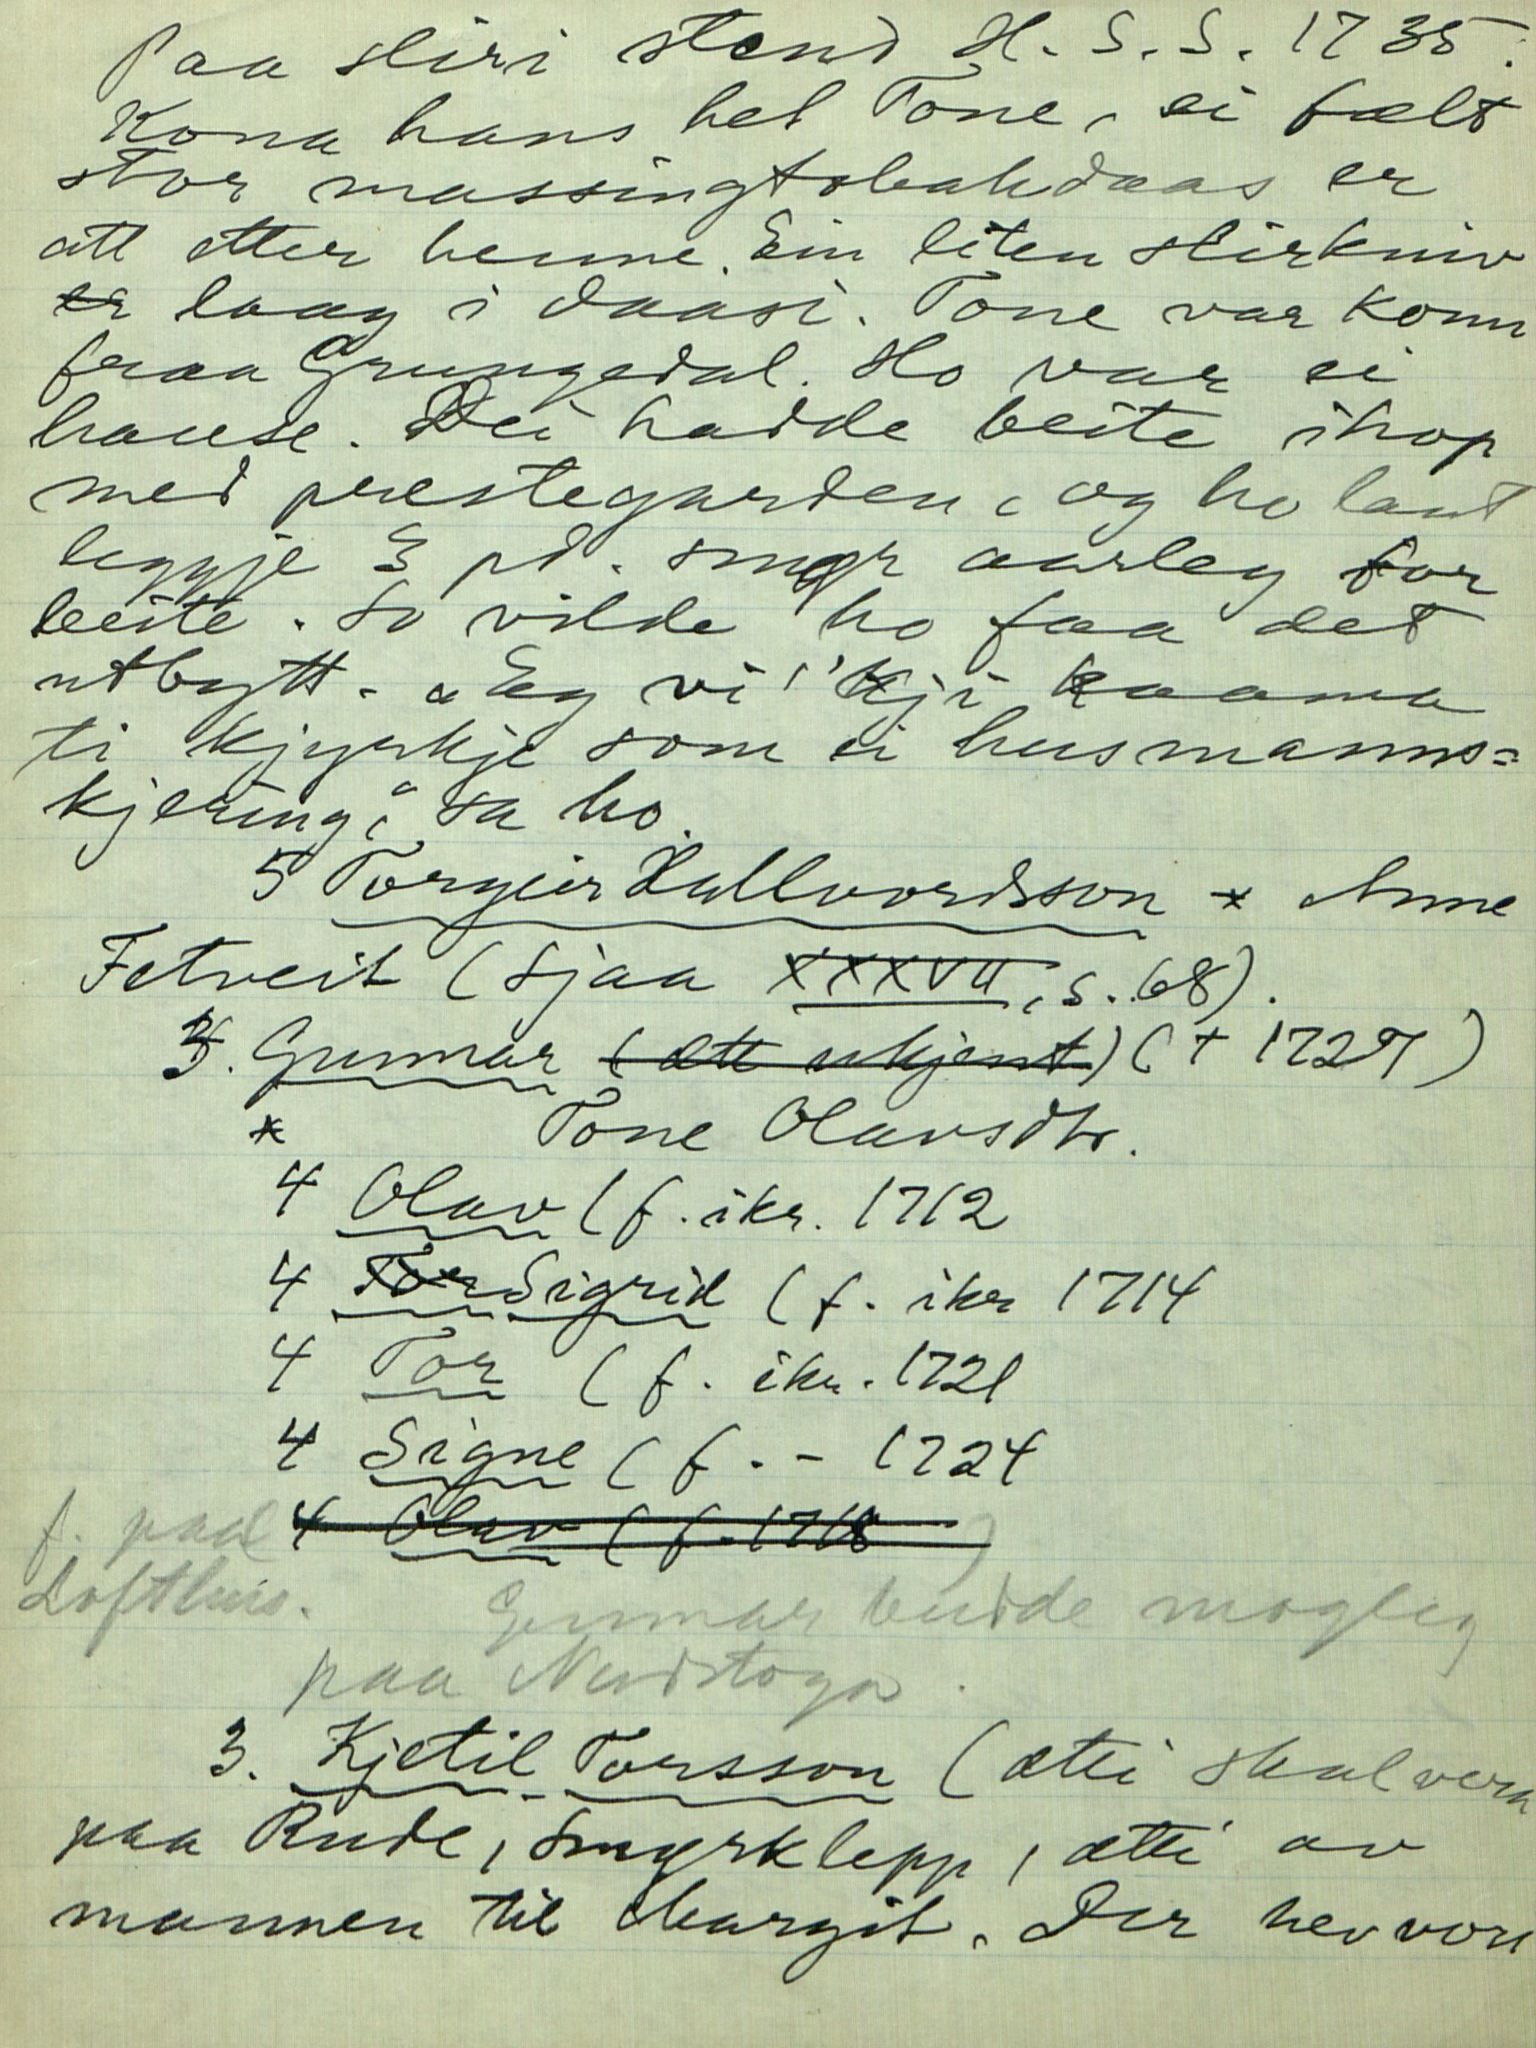 Paa sliri stend H. S. S. 1735.
Kona hans het Tone, ei fælt
stor massingtobakdaas er
att etter henne. Ein liten slirkniv
er laag i daasi. Tone var komi
fraa Grungedal. Ho var ei
hause. Dei hadde beite ihop
med prestegarden, og ho laut
leggje 3 pd. smør aarleg for
beite. So vilde ho faa det
utbytt. „Eg vi' kji kaama
ti kjyrkje som ei husmanns=
kjering,“ sa ho.
5 Torgeir Hallvordsson * Anne
Fetveit (sjaa XXXVII, s. 68).
3. Gunnar (ætt ukjent) († 1727)
* Tone Olavsdtr.
4 Olav (f. ikr. 1712
4 Tor Sigrid (f. ikr 1714
4 Tor (f. ikr. 1721
4 Signe (f. - 1724
4 Olav (f. 1718)
f. paa
Lofthus.
Gunnar budde mogleg
paa Nordstoga.
3. Kjetil Torsson (ætti skal vera
paa Rude, Smyrklepp, ætti av
mannen til Margit. Der hev vori